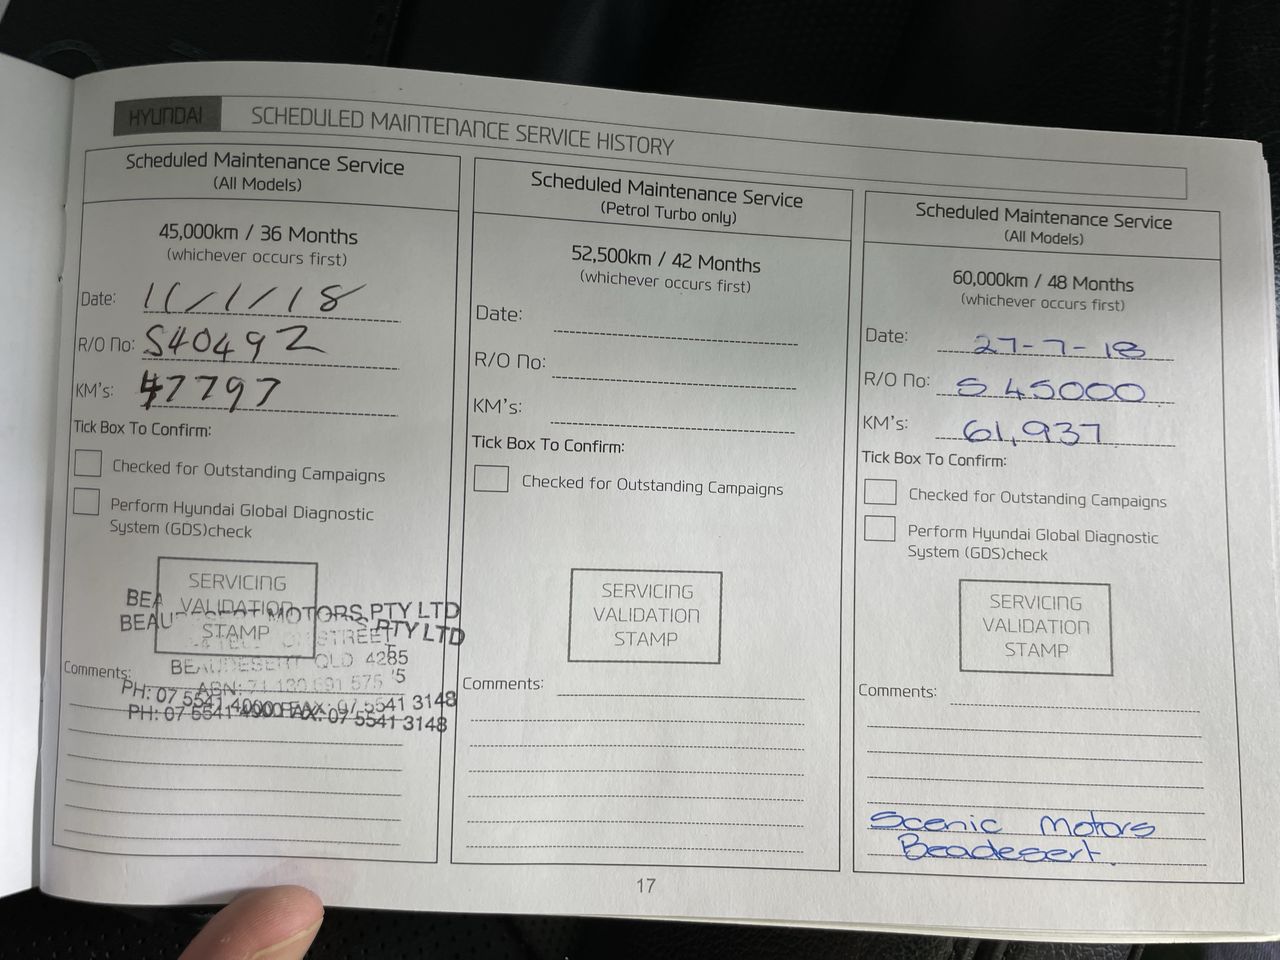 HYUNDAI
SCHEDULED MAINTENANCE SERVICE HISTORY
Scheduled Maintenance Service
(All Models)
45,000km / 36 Months
(whichever occurs first)
Date: 11/1/18
R/O No: S40492
KM's: 47797
Tick Box To Confirm:
Checked for Outstanding Campaigns
Perform Hyundai Global Diagnostic
System (GDS)check
SERVICING
VALIDATION
STAMP
MOTORS PTY LTD
PTY LTD
STREET
BEAUDESERT QLD 4285
Comments:
PH: 07 5541 4000 FAX: 07 5541 3148
PH: 07 5541 4000 FAX: 07 5541 3148
Scheduled Maintenance Service
(Petrol Turbo only)
52,500km / 42 Months
(whichever occurs first)
Date:
R/O No:
KM's:
Tick Box To Confirm:
Checked for Outstanding Campaigns
SERVICING
VALIDATION
STAMP
Comments:
Scheduled Maintenance Service
(All Models)
60,000km / 48 Months
(whichever occurs first)
Date: 27-7-18
R/O No: S 45000
KM's: 61,937
Tick Box To Confirm:
Checked for Outstanding Campaigns
Perform Hyundai Global Diagnostic
System (GDS)check
SERVICING
VALIDATION
STAMP
Comments:
Scenic Motors
Beadesert.
17